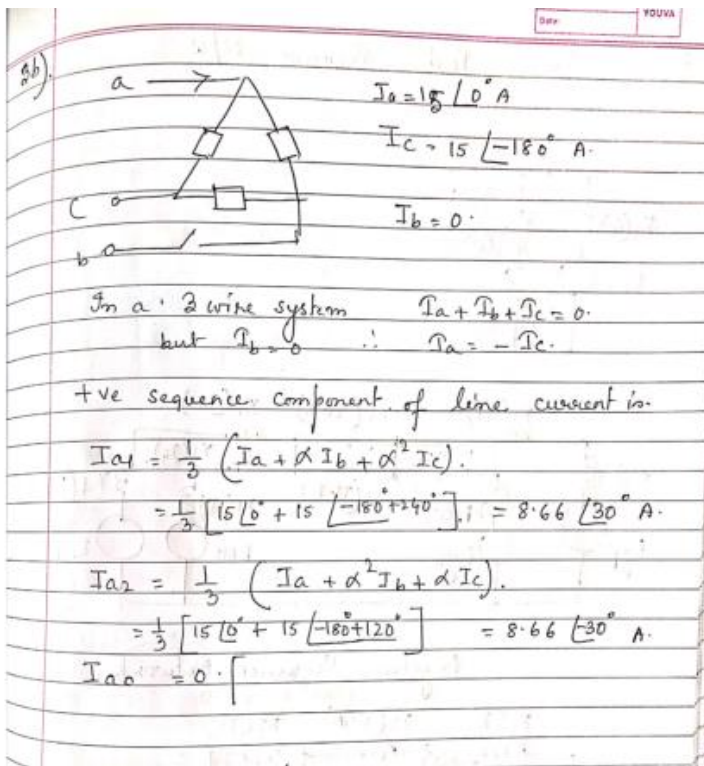 YOUVA
Date
3b).
a
Ia = 15 ∠0° A
Ic = 15 ∠-180° A.
C
Ib = 0.
b
In a 3 wire system Ia + Ib + Ic = 0.
but Ib = 0 ∴ Ia = - Ic.
+ve sequence component of line current is.
Ia1 = 1/3 (Ia + α Ib + α² Ic).
= 1/3 [15 ∠0° + 15 ∠-180°+240°] = 8.66 ∠30° A.
Ia2 = 1/3 (Ia + α² Ib + α Ic).
= 1/3 [15 ∠0° + 15 ∠-180°+120°] = 8.66 ∠-30° A.
Iao = 0. [